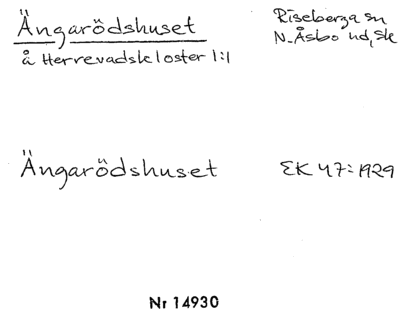 Ängarödshuset
å Herrevadskloster 1:1
Riseberga sn
N. Åsbo hd, Sk
Ängarödshuset
EK 47:1929
Nr 14930